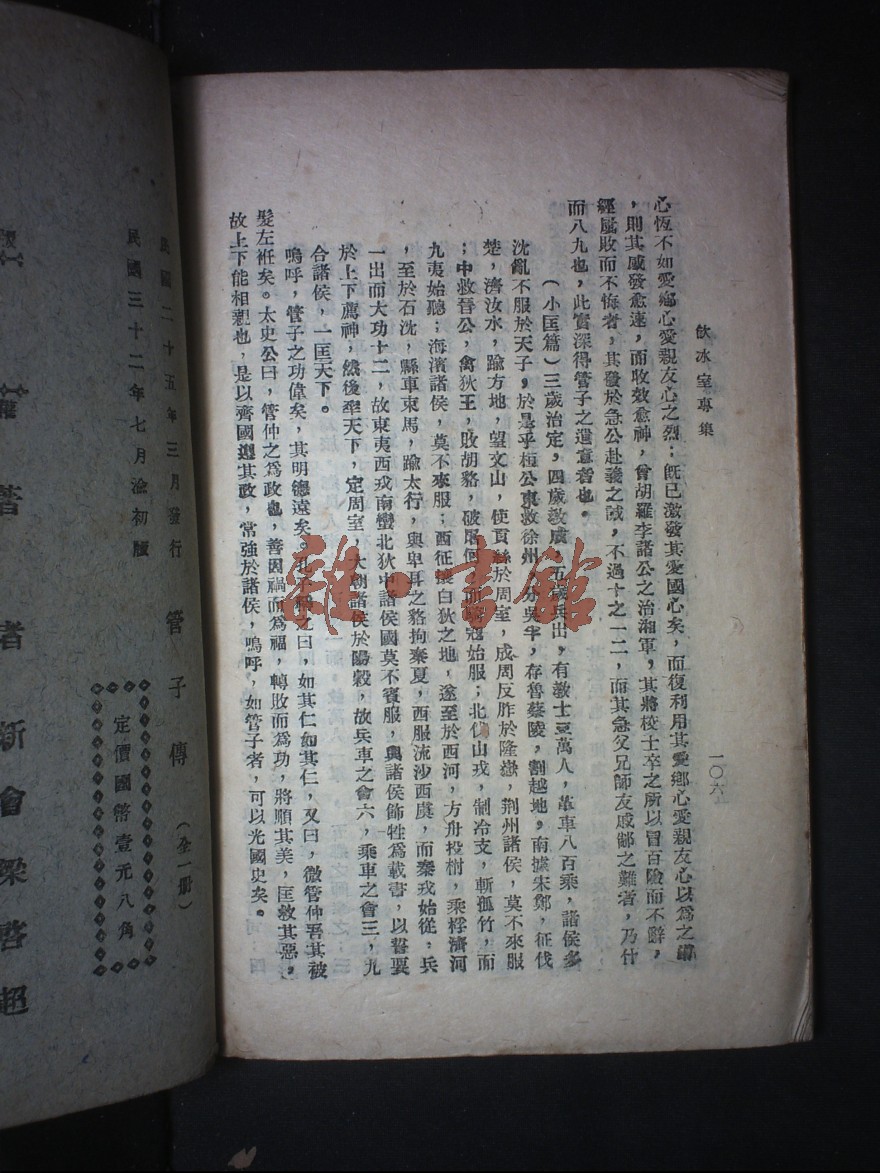 飲冰室專集
一〇六
心恆不如愛鄉心愛親友心之烈；既已激發其愛國心矣，而復利用其愛鄉心愛親友心以爲之
，則其感發愈速，而收效愈神，曾胡羅李諸公之治湘軍，其將校士卒之所以冒百險而不辭，
經屢敗而不悔者，其發於急公赴義之誠，不過十之一二，而其急父兄師友戚鄰之難者，乃什
而八九也，此實深得管子之遺意者也。
（小匡篇）三歲治定，四歲教成，五歲兵出，有教士三萬人，革車八百乘，諸侯多
沈亂不服於天子，於是乎桓公東救徐州，分吳半，存魯蔡陵，割越地，南據宋鄭，征伐
楚，濟汝水，踰方地，望文山，使貢絲於周室，成周反胙於隆嶽，荆州諸侯，莫不來服
；中救晉公，禽狄王，敗胡貉，破屠何，而騎寇始服；北伐山戎，制冷支，斬孤竹，而
九夷始聽；海濱諸侯，莫不來服；西征攘白狄之地，遂至於西河，方舟投柎，乘桴濟河
，至於石沈，縣車束馬，踰太行，與卑耳之貉拘秦夏，西服流沙西虞，而秦戎始從，兵
一出而大功十二，故東夷西戎南蠻北狄中諸侯國莫不賓服，與諸侯飾牲爲載書，以誓要
於上下薦神，然後率天下，定周室，大朝諸侯於陽穀，故兵車之會六，乘車之會三，九
合諸侯，一匡天下。
嗚呼，管子之功偉矣，其明德遠矣。孔子稱之曰，如其仁如其仁，又曰，微管仲吾其被
髮左衽矣。太史公曰，管仲之爲政也，善因禍而爲福，轉敗而爲功，將順其美，匡救其惡，
故上下能相親也，是以齊國遵其政，常強於諸侯，嗚呼，如管子者，可以光國史矣。
定價國幣壹元八角
管子傳（全一册）
民國二十五年三月發行
民國三十二年七月渝初版
著者 新會梁啓超
雜·書館